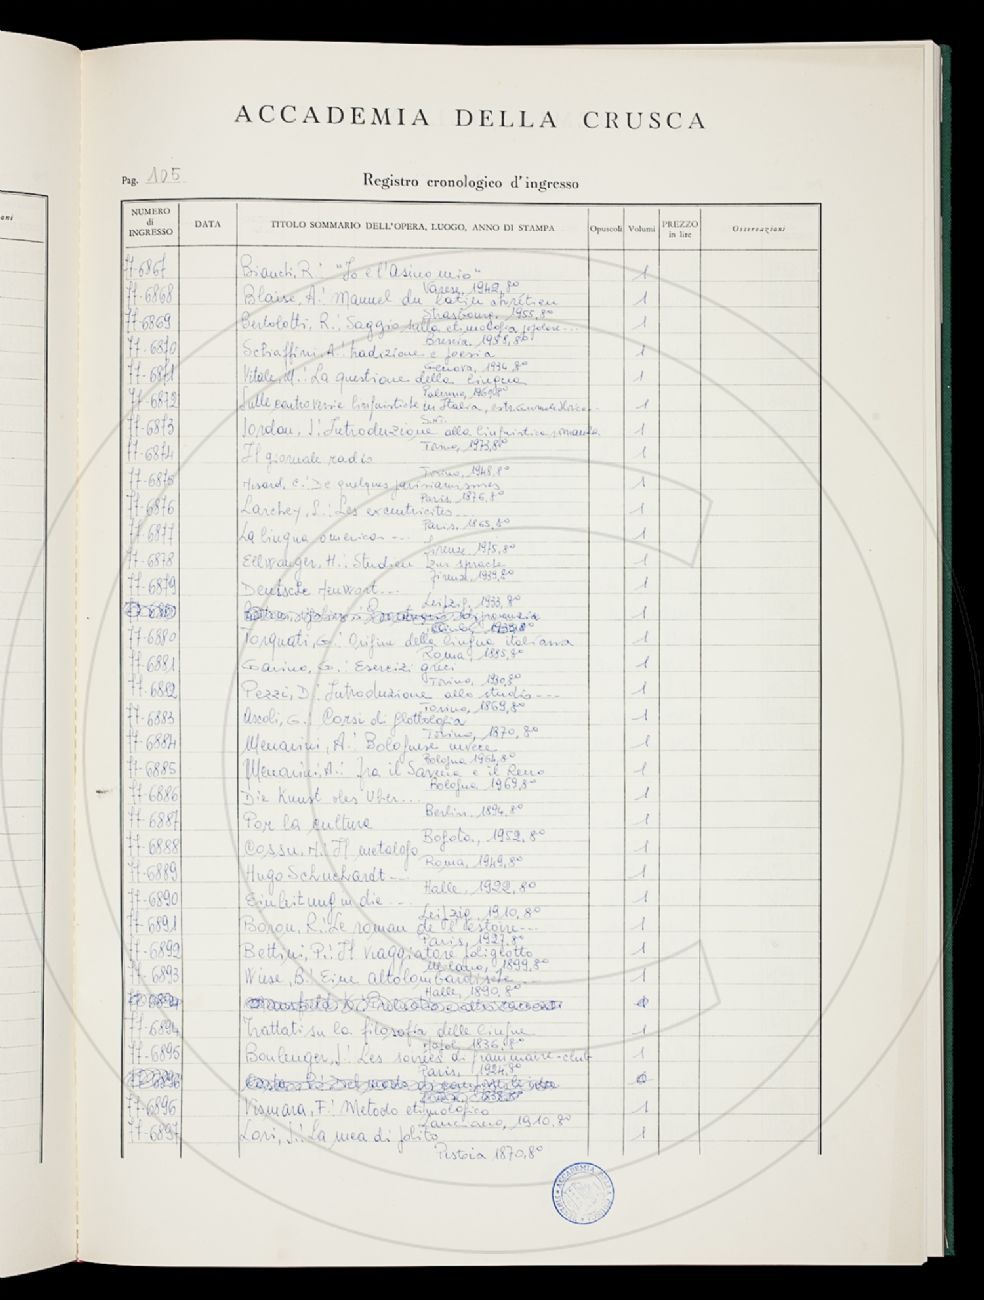 ACCADEMIA DELLA CRUSCA
Pag. 105
Registro cronologico d'ingresso
NUMERO di INGRESSO DATA TITOLO SOMMARIO DELL'OPERA, LUOGO, ANNO DI STAMPA Opuscoli Volumi PREZZO in lire Osservazioni
77-6867 Bianchi, R.: "Io e l'asino mio" 1
Varese, 1942, 8°
77-6868 Blaise, A.: Manuel du latin chrétien 1
Strasbourg, 1955, 8°
77-6869 Bertolotti, R.: Saggio sulla etimologia popolare... 1
Brescia, 1958, 8°
77-6870 Schiaffini, A.: Tradizione e poesia 1
Genova, 1934, 8°
77-6871 Vitale, M.: La questione della lingua 1
Palermo, 8°
77-6872 Sulle controversie linguistiche in Italia, 1
77-6873 Iordan, I.: Introduzione alla linguistica romanza 1
Torino, 1973, 8°
77-6874 Il giornale radio 1
Torino, 1948, 8°
77-6875 C.: De quelques parisianismes 1
Paris, 1876, 8°
77-6876 Larchey, L.: Les excentricités... 1
Paris, 1865, 8°
77-6877 La lingua omerica ... 1
Firenze, 1975, 8°
77-6878 Ellwanger, H.: Studien zur sprache 1
Firenze, 1939, 8°
77-6879 Deutsche ... 1
Leipzig, 1933, 8°
1
77-6880 Torquati, G.: Origine della lingua italiana 1
Roma, 1885, 8°
77-6881 Garino, G.: Esercizi greci 1
Torino, 8°
77-6882 Pezzi, D.: Introduzione allo studio... 1
Torino, 1869, 8°
77-6883 Ascoli, G.: Corsi di glottologia 1
Torino, 1870, 8°
77-6884 Menarini, A.: Bolognese invece 1
Bologna 1964, 8°
77-6885 Menarini, A.: Fra il Savena e il Reno 1
Bologna 1969, 8°
77-6886 Die Kunst des Über... 1
Berlin, 1894, 8°
77-6887 Por la cultura 1
Bogota, 1952, 8°
77-6888 Cossu, M.: Il metalogo 1
Roma, 1949, 8°
77-6889 Hugo Schuchardt... 1
Halle, 1922, 8°
77-6890 Einleitung in die... 1
Leipzig, 1910, 8°
77-6891 Boron, R.: Le roman de l'estoire... 1
Paris, 1927, 8°
77-6892 Bettini, P.: Il viaggiatore poliglotto 1
Milano, 1899, 8°
77-6893 Wiese, B.: Eine altlombardische... 1
Halle, 1890, 8°
77-6894 Trattati su la filosofia delle lingue 1
Napoli, 1836, 8°
77-6895 Boulenger, J.: Les soirées du grammaire-club 1
Paris, 1924, 8°
77-6896 Vismara, F.: Metodo etimologico 1
Lanciano, 1910, 8°
77-6897 Lori, J.: La mea di Polito 1
Pistoia 1870, 8°
ACCADEMIA DELLA CRUSCA